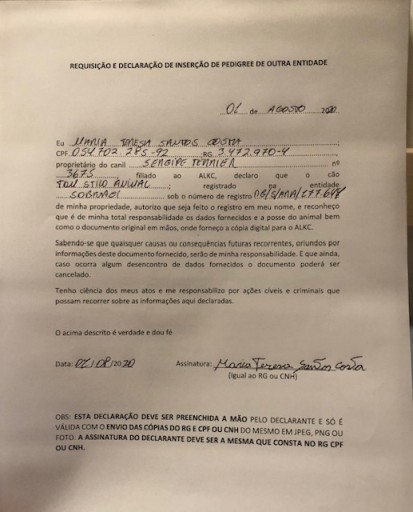 REQUISIÇÃO E DECLARAÇÃO DE INSERÇÃO DE PEDIGREE DE OUTRA ENTIDADE
01 de AGOSTO 2020
Eu MARIA TERESA SANTOS COSTA
CPF 054.702.285-92 ;RG 3.472.970-4
proprietário do canil SERGIPE TERRIER nº
3675 filiado ao ALKC, declaro que o cão
TOM STILO ANIMAL ; registrado na entidade
SOBRACI sob o número de registro
de minha propriedade, autorizo que seja feito o registro em meu nome, e reconheço
que é de minha total responsabilidade os dados fornecidos e a posse do animal bem
como o documento original em mãos, onde forneço a cópia digital para o ALKC.
Sabendo-se que quaisquer causas ou consequências futuras recorrentes, oriundos por
informações deste documento fornecido, serão de minha responsabilidade. E que ainda,
caso ocorra algum desencontro de dados fornecidos o documento poderá ser
cancelado.
Tenho ciência dos meus atos e me responsabilizo por ações cíveis e criminais que
possam recorrer sobre as informações aqui declaradas.
O acima descrito é verdade e dou fé
Data: 01/08/2020 Assinatura: Maria Teresa Santos Costa
(Igual ao RG ou CNH)
OBS: ESTA DECLARAÇÃO DEVE SER PREENCHIDA A MÃO PELO DECLARANTE E SÓ É
VÁLIDA COM O ENVIO DAS CÓPIAS DO RG E CPF OU CNH DO MESMO EM JPEG, PNG OU
FOTO. A ASSINATURA DO DECLARANTE DEVE SER A MESMA QUE CONSTA NO RG CPF
OU CNH.